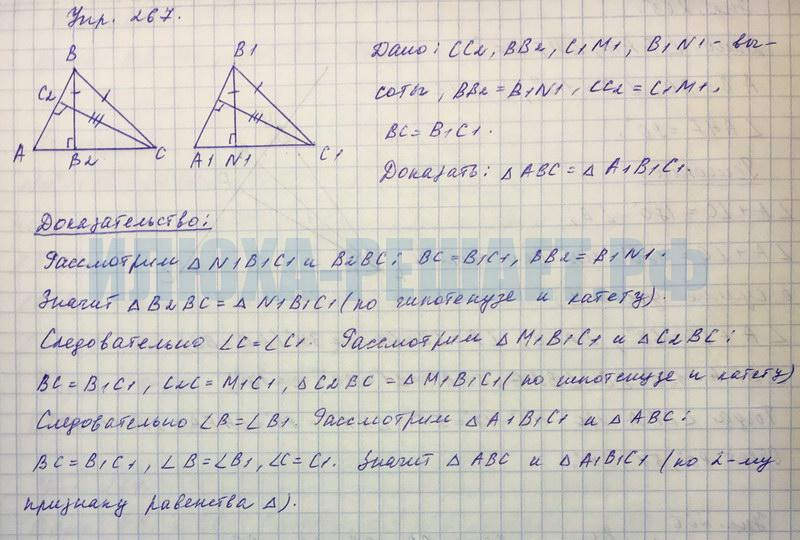 Упр. 267.
B
C2
A
B2
C
B1
A1
N1
C1
Дано: CC2, BB2, C1M1, B1N1 - вы-
соты, BB2 = B1N1, CC2 = C1M1,
BC = B1C1.
Доказать: △ ABC = △ A1B1C1.
Доказательство:
Рассмотрим △ N1B1C1 и B2BC: BC = B1C1, BB2 = B1N1.
Значит △ B2BC = △ N1B1C1 (по гипотенузе и катету).
Следовательно ∠C = ∠C1. Рассмотрим △ M1B1C1 и △ C2BC:
BC = B1C1, C2C = M1C1, △ C2BC = △ M1B1C1 (по гипотенузе и катету)
Следовательно ∠B = ∠B1. Рассмотрим △ A1B1C1 и △ ABC:
BC = B1C1, ∠B = ∠B1, ∠C = C1. Значит △ ABC и △ A1B1C1 (по 2-му
признаку равенства △).
ИЛЮХА-РЕШАЕТ.РФ